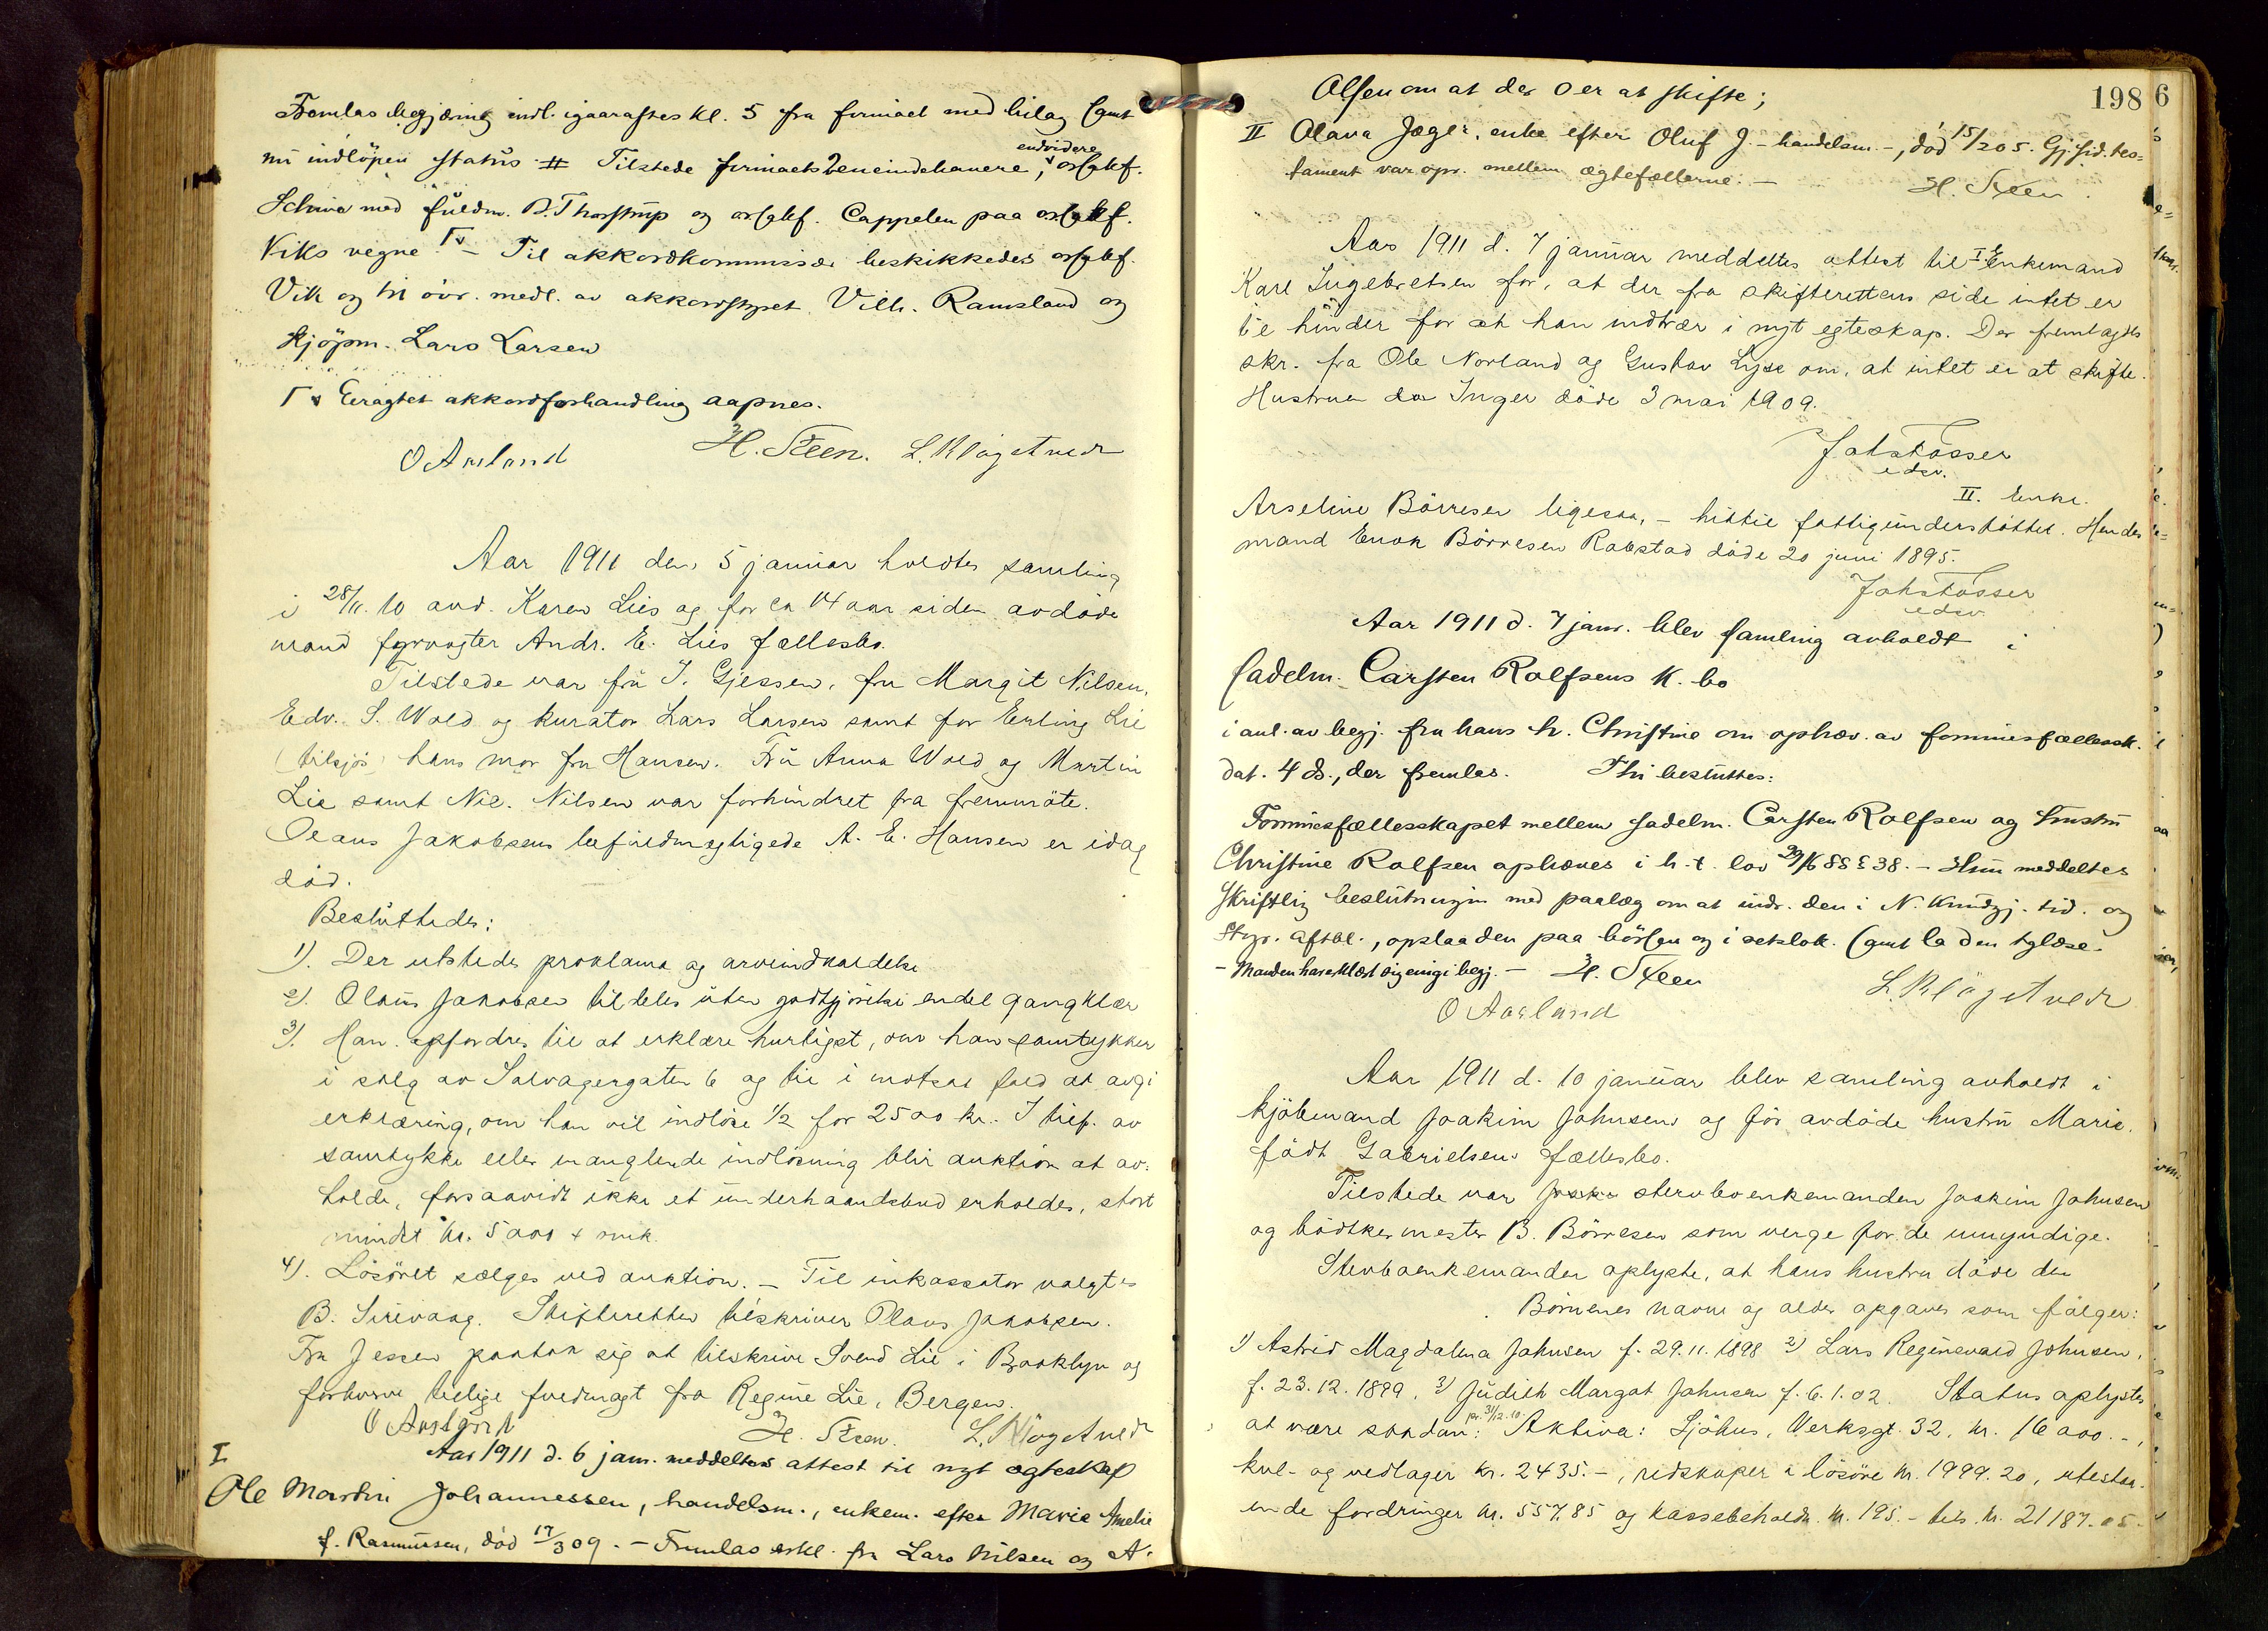 Fremlas begjæring indl. igaaraftes kl. 5 fra firmaet med bilag samt
nu indlöpen status # Tilstede firmaets 2 eneindehavere, endvidere orsgkf.
Schiwe med fuldm. B. Thorstrup og orsgkf. Cappelen paa orsgkf.
Viks vegne. Γv – Til akkordkommissær beskikkedes orsgkf.
Vik og til övr. medl. av akkordstyret Vilh. Ramsland og
Kjöpm. Lars Larsen
Γv Eragtet akkordforhandling aapnes.
O Aasland H. Steen. L. Klögetvedt
Aar 1911 den 5 januar holdtes samling
i 28/11. 10 avd. Karen Lies og for ca 14 aar siden avdöde
mand fyrvogter Andr. E. Lies fællesbo.
Tilstede var fru J. Gjessen, fru Margit Nilsen,
Edv. S. Wold og kurator Lars Larsen samt for Erling Lie
(tilsjös) hans mor fru Hansen. Fru Anna Wold og Martin
Lie samt Nic. Nilsen var forhindret fra fremmöte.
Olaus Jakobsens befuldmægtigede A. E. Hansen er idag
död.
Besluttedes:
1). Der utstedes proklama og arveindkaldelse
2). Olaus Jakobsen tildeles uten godtgjörelse endel gangklær
3). Han opfordres til at erklære hurtigst, om han samtykker
i salg av Salvagergaten 6 og til i motsat fald at avgi
erklæring, om han vil indlöse 1/2 for 2500 kr. I tilf. av
samtykke eller manglende indlösning blir auktion at av-
holde, forsaavidt ikke et underhaandsbud erholdes, stort
mindst kr. 5000 + omk.
4). Lösöret sælges ved auktion. – Til inkassator valgtes
B. Sirevaag. Skifteretten tilskriver Olaus Jakobsen.
Fru Jessen paatok sig at tilskrive Svend Lie i Brooklyn og
forhverve tillige fuldmagt fra Regine Lie, Bergen.
O Aasland H. Steen. L. Klögetvedt
I Aar 1911 d. 6 janr. meddeltes attest til nyt ægteskap
Ole Martin Johannessen, handelsm., enkem. efter Marie Amelie
f. Rasmussen, död 17/3 09. – Fremlas erkl. fra Lars Nilsen og A.
198 6
Olsen om at der 0 er at skifte;
II Olava Jæger, enke efter Oluf J. – handelsm. –, död 15/2 05. Gj.sid. tes-
tament var opr. mellem ægtefællerne. – H. Steen.
Aar 1911 d. 7 januar meddeltes attest til I Enkemand
Karl Ingebretsen for, at der fra skifterettens side intet er
til hinder for at han indtrær i nyt egteskap. Der fremlagdes
skr. fra Ole Norland og Gustav Lyse om, at intet er at skifte.
Hustruen Inger döde 3 mai 1909.
Joh. Fösser
edsv.
II. Enke
Arseline Börresen ligesaa, – hittil fattigunderstöttet. Hendes
mand Enok Börresen Rabstad döde 20 juni 1895.
Joh. Fösser
edsv.
Aar 1911 d. 7 janr. blev samling avholdt i
sadelm. Carsten Rolfsens K. bo
i anl. av begj. fra hans h. Christine om ophæv. av formuesfællessk.
dat. 4 ds., der fremlas. Thi besluttes:
Formuesfællesskapet mellem sadelm. Carsten Rolfsen og hustru
Christine Rolfsen ophæves i h. t. lov 29/6 88 § 38. – Hun meddeltes
skriftlig beslutningen med paalæg om at indr. den i N. Kundgj. tid. og
Stvgr. Aftbl., opslaa den paa börsen og i retslok. samt la den tglæse.
– Manden har erklært sig enig i begj. – H. Steen
O Aasland L. Klögetvedt
Aar 1911 d. 10 januar blev samling avholdt i
kjöbmand Joakim Johnsens og för avdöde hustru Marie,
födt Gabrielsens fællesbo.
Tilstede var stervboenkemanden Joakim Johnsen
og bödtkermester B. Börresen som verge for de umyndige.
Stervboenkemanden oplyste, at hans hustru döde den
. Börnenes navne og alder opgaves som fölger:
1) Astrid Magdalena Johnsen f. 29.11.1898 2) Lars Reginevald Johnsen,
f. 23.12.1899. 3) Judith Margot Johnsen f. 6.1.02. Status oplystes
at være saadan: pr. 31/12.10. Aktiva: Sjöhus, Verksgt. 32, kr. 16000.–,
kul- og vedlager kr. 2435.–, redskaper i lösöre kr. 1999.20, utestaa-
ende fordringer kr. 557.85 og kassebeholdn. kr. 195.– tils. kr. 21187.05.